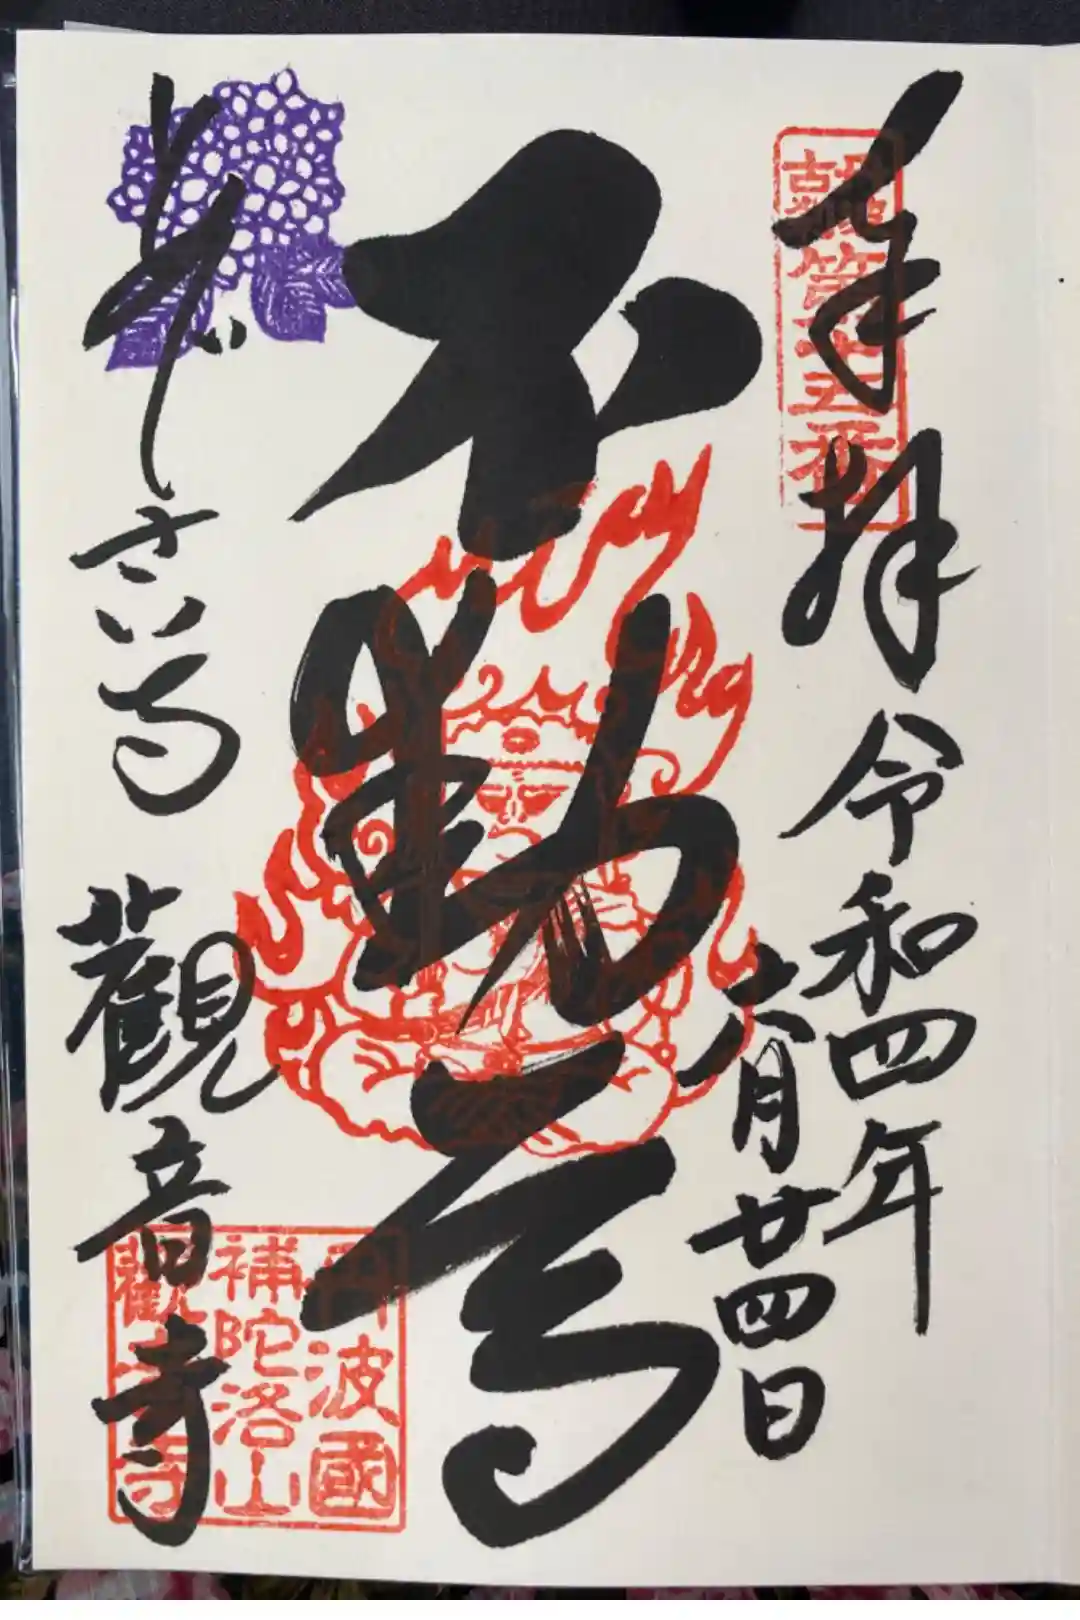 奉拝
令和四年
六月廿四日
不動尊
あぢさい寺
觀音寺
丹波國
補陀洛山
觀音寺